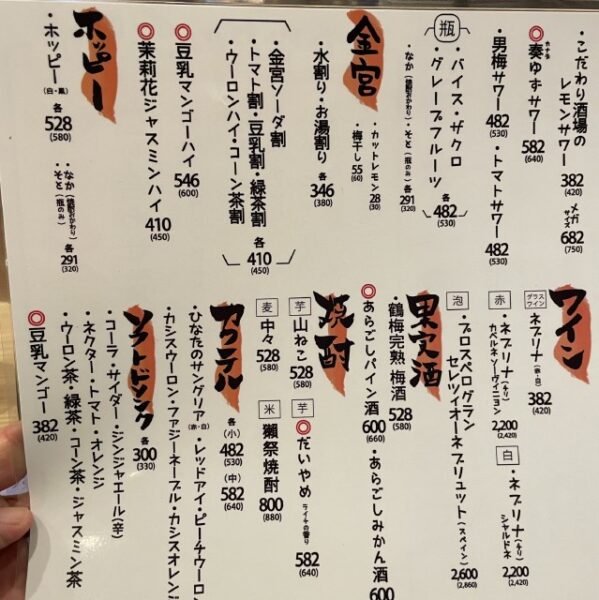 ・こだわり酒場の
レモンサワー
382
(420)
メガ
サイズ
682
(750)
◎奏ゆずサワー
582
(640)
・男梅サワー
482
(530)
・トマトサワー
482
(530)
瓶
・バイス・ザクロ
・グレープフルーツ
各
482
(530)
・なか(焼酎おかわり)・そと(瓶のみ)
各
291
(320)
金宮
・カットレモン
28
(30)
・梅干し
55
(60)
・水割り・お湯割り
各
346
(380)
・金宮ソーダ割
・トマト割・豆乳割・緑茶割
・ウーロンハイ・コーン茶割
各
410
(450)
◎豆乳マンゴーハイ
546
(600)
◎茉莉花ジャスミンハイ
410
(450)
ホッピー
・ホッピー(白・黒)
各
528
(580)
・なか(焼酎おかわり)
・そと(瓶のみ)
各
291
(320)
ワイン
グラス
ワイン
・ネブリナ(赤・白)
382
(420)
赤
・ネブリナ(チリ)
カベルネソーヴィニヨン
2,200
(2,420)
白
・ネブリナ(チリ)
シャルドネ
2,200
(2,420)
泡
・プロスペログラン
セレツィオーネブリュット(スペイン)
2,600
(2,860)
果実酒
・鶴梅完熟 梅酒
528
(580)
◎あらごしパイン酒
600
(660)
・あらごしみかん酒
600
焼酎
芋
山ねこ
528
(580)
芋
◎だいやめ
ライチの香り
582
(640)
麦
中々
528
(580)
米
獺祭焼酎
800
(880)
カクテル
各
(小)
482
(530)
(中)
582
(640)
・ひなたのサングリア(赤・白)・レッドアイ・ピーチウーロン
・カシスウーロン・ファジーネーブル・カシスオレンジ
ソフトドリンク
各
300
(330)
・コーラ・サイダー・ジンジャエール(辛)
・ネクター・トマト・オレンジ
・ウーロン茶・緑茶・コーン茶・ジャスミン茶
◎豆乳マンゴー
382
(420)